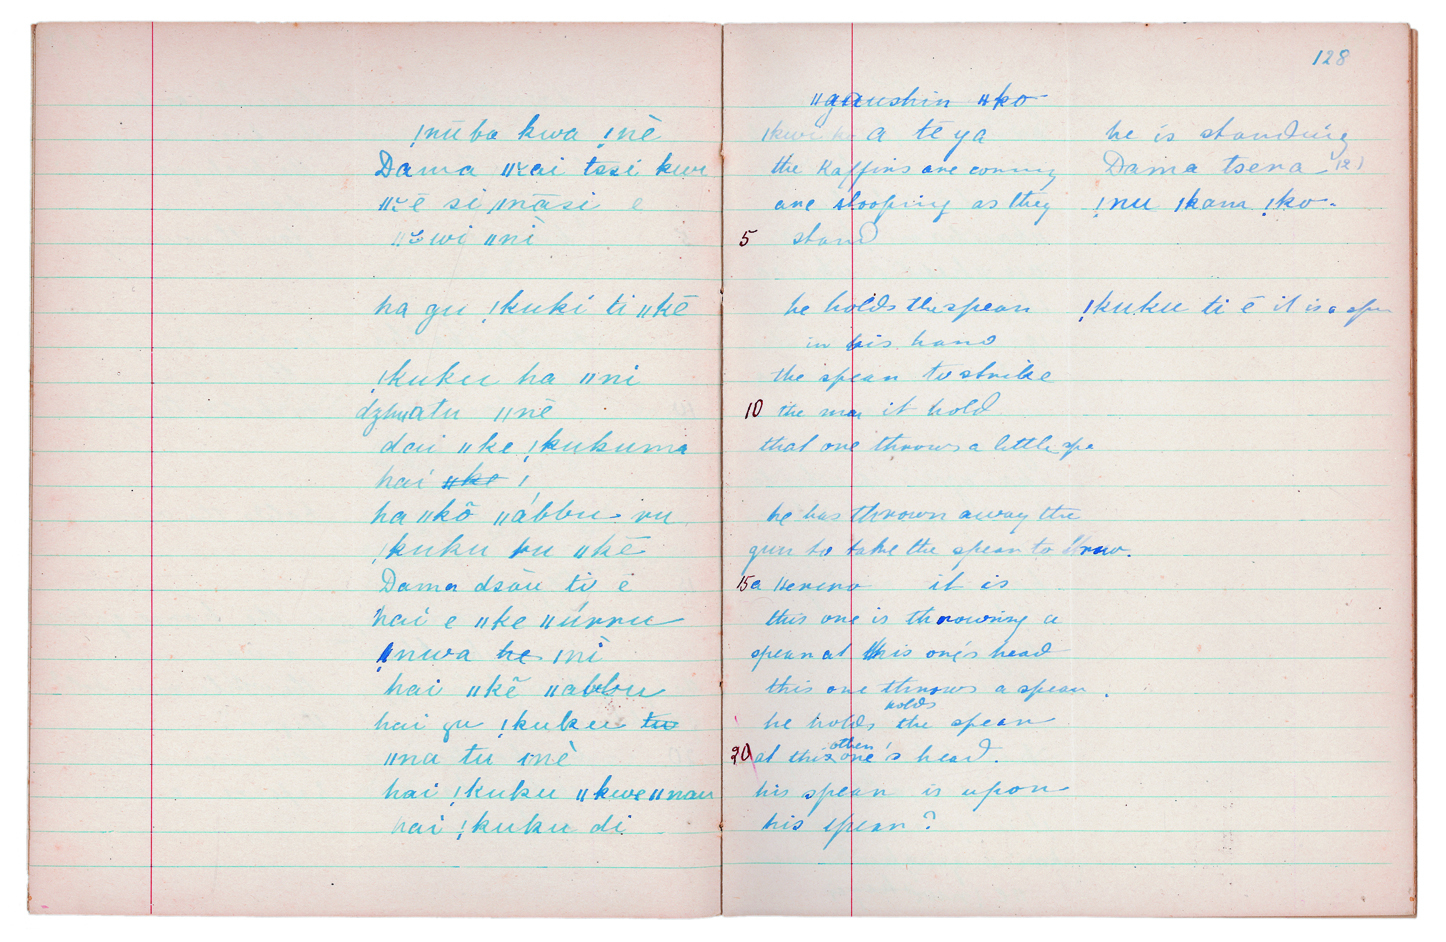 ǃnūba kwa ǃnè
Dama ǁkai tssi kwi
ǁkē si ǀnāsi e
ǁkwi ǁnì
ha gu ǃkuki ti ǁkē
ǃkuku ha ǁni
dzhuatu ǁnē
dai ǁke ǃkukuma
hai ǁke ǀ
ha ǁkõ ǁábbu ru
ǃkuku ru ǁkē
Dama dsòu ti é
hai e ǁke ǁúrru
ǃnwa he ǀnì
hai ǁkẽ ǁabbu
hai gu ǃkuku tu
ǁna tu ǀnè
hai ǃkuku ǁkwe ǁnau
hai ǃkuku di
128
ǁgaushin ǁko
a tē ya he is standing
the Kaffirs are coming Dama tsena (2)
are stooping as they ǃnu ǀkam ǃko.
5 stand
he holds the spear ǃkuku ti ē it is a spe
in his hand
the spear to strike
10 the man it hold
that one throws a little spe
he has thrown away the
gun to take the spear to throw.
15 a Herero it is
this one is throwing a
spear at this one's head
this one throws a spear.
holds
he holds the spear
other
20 at this one's head.
his spear is upon
his spear?